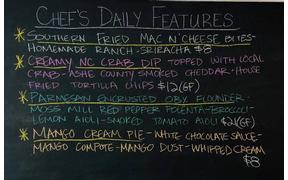 CHEF'S DAILY FEATURES
SOUTHERN FRIED MAC N'CHEESE BITES-
HOMEMADE RANCH-SRIRACHA $8
CREAMY NC CRAB DIP TOPPED WITH LOCAL
CRAB-ASHE COUNTY SMOKED CHEDDAR-HOUSE
FRIED TORTILLA CHIPS $12(GF)
PARMESAN ENCRUSTED OBX FLOUNDER-
MOSS MILL RED PEPPER POLENTA-BROCCOLI-
LEMON AIOLI-SMOKED TOMATO AIOLI $24(GF)
MANGO CREAM PIE-WHITE CHOCOLATE SAUCE-
MANGO COMPOTE-MANGO DUST-WHIPPED CREAM
$8